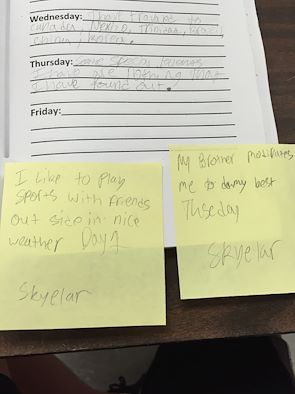 Wednesday: I have traveled to
Canada, Mexico,
China, Korea.
Thursday: Some special talents
I have are nothing that
I have found out.
Friday:
I Like to Play
Sports with Friends
out side in nice
weather Day 1
Skyelar
My Brother motivates
me to do my best
Thseday
Skyelar